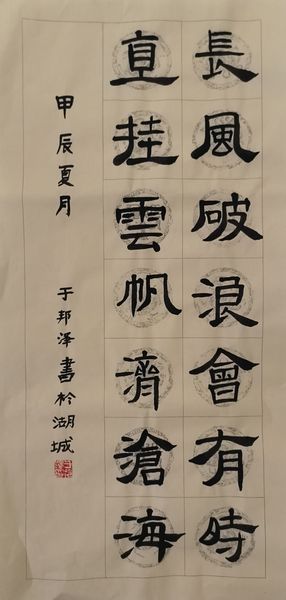 長風破浪會有時
直挂雲帆濟滄海
甲辰夏月
于邦澤書於湖城